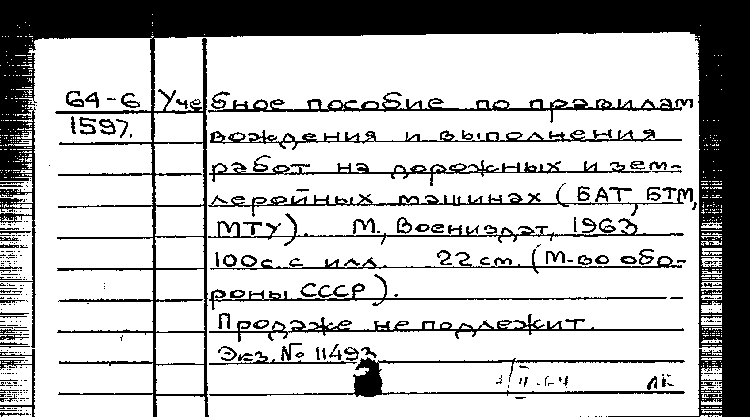 64-6 Учебное пособие по правилам
1597. вождения и выполнения
работ на дорожных и зем-
леройных машинах (БАТ, БТМ,
МТУ). М., Воениздат, 1963.
100 с. с илл. 22 см. (М-во обо-
роны СССР).
Продаже не подлежит.
Экз. № 11493